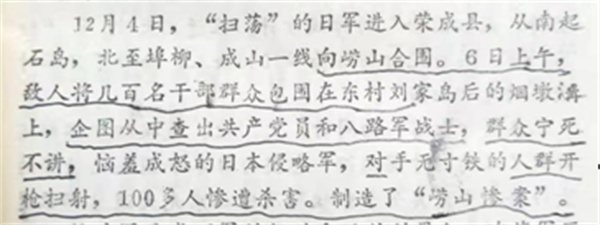 12月4日，“扫荡”的日军进入荣成县，从南起
石岛，北至埠柳、成山一线向崂山合围。6日上午，
敌人将几百名干部群众包围在东村刘家岛后的烟墩
上，企图从中查出共产党员和八路军战士，群众宁死
不讲，恼羞成怒的日本侵略军，对手无寸铁的人群开
枪扫射，100多人惨遭杀害。制造了“崂山惨案”。